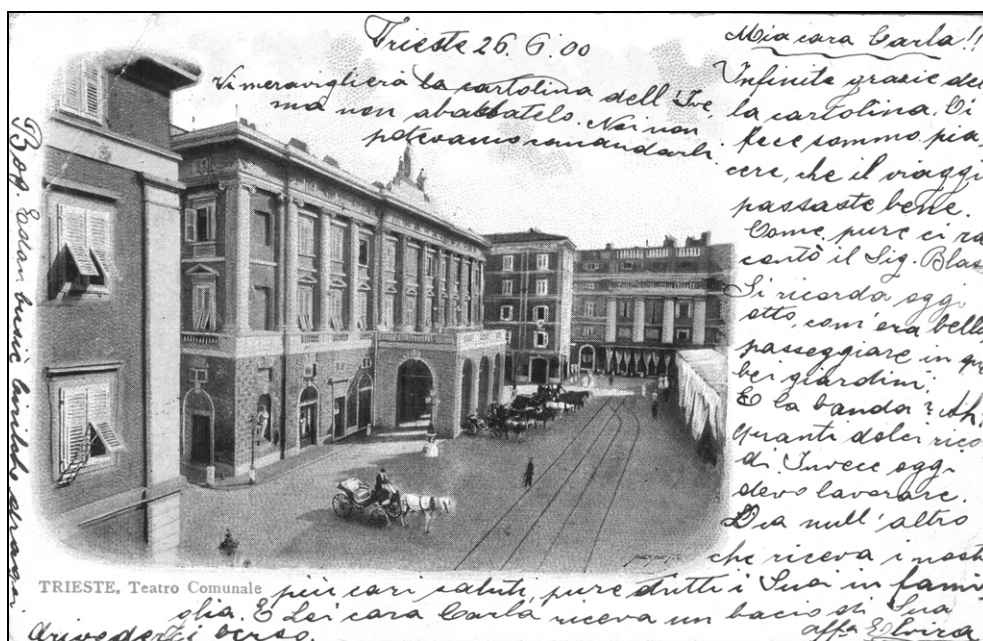 Trieste 26. 6. 00
Vi meraviglierà la cartolina dell'
ma non Noi non
potevamo comandarli.
Mia cara Carla!!
Infinite grazie del
la cartolina. Ci
fece sommo pia
cere, che il viaggi
passaste bene.
Come pure ci ra
contò il Sig. Blas
Si ricorda oggi
otto, com'era bello,
passeggiare in qu
bei giardini.
E la banda? Ah,
quanti dolci rico
di Invece oggi
devo lavorare.
null'altro
che riceva i nost
TRIESTE. Teatro Comunale
più cari saluti, pure tutti i Suoi in fami
glia. E Lei cara Carla riceva un bacio di Sua
aff.a Elvira
verso.